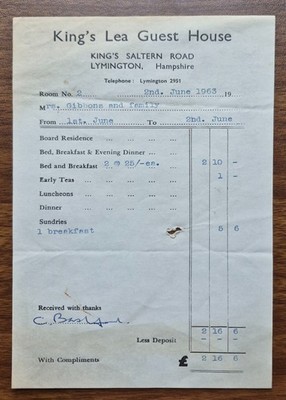 King's Lea Guest House
KING'S SALTERN ROAD
LYMINGTON, Hampshire
Telephone: Lymington 2901
Room No. 2 2nd. June 1963 19
Mrs. Gibbons and family
From 1st. June To 2nd. June
Board Residence ... ... ...
Bed, Breakfast & Evening Dinner ... ...
Bed and Breakfast 2 @ 25/-ea. ... 2 10 -
Early Teas ... ... ... ... 1 -
Luncheons ... ... ... ...
Dinner ... ... ... ...
Sundries
1 breakfast 5 6
Received with thanks
Less Deposit 2 16 6
With Compliments £ 2 16 6